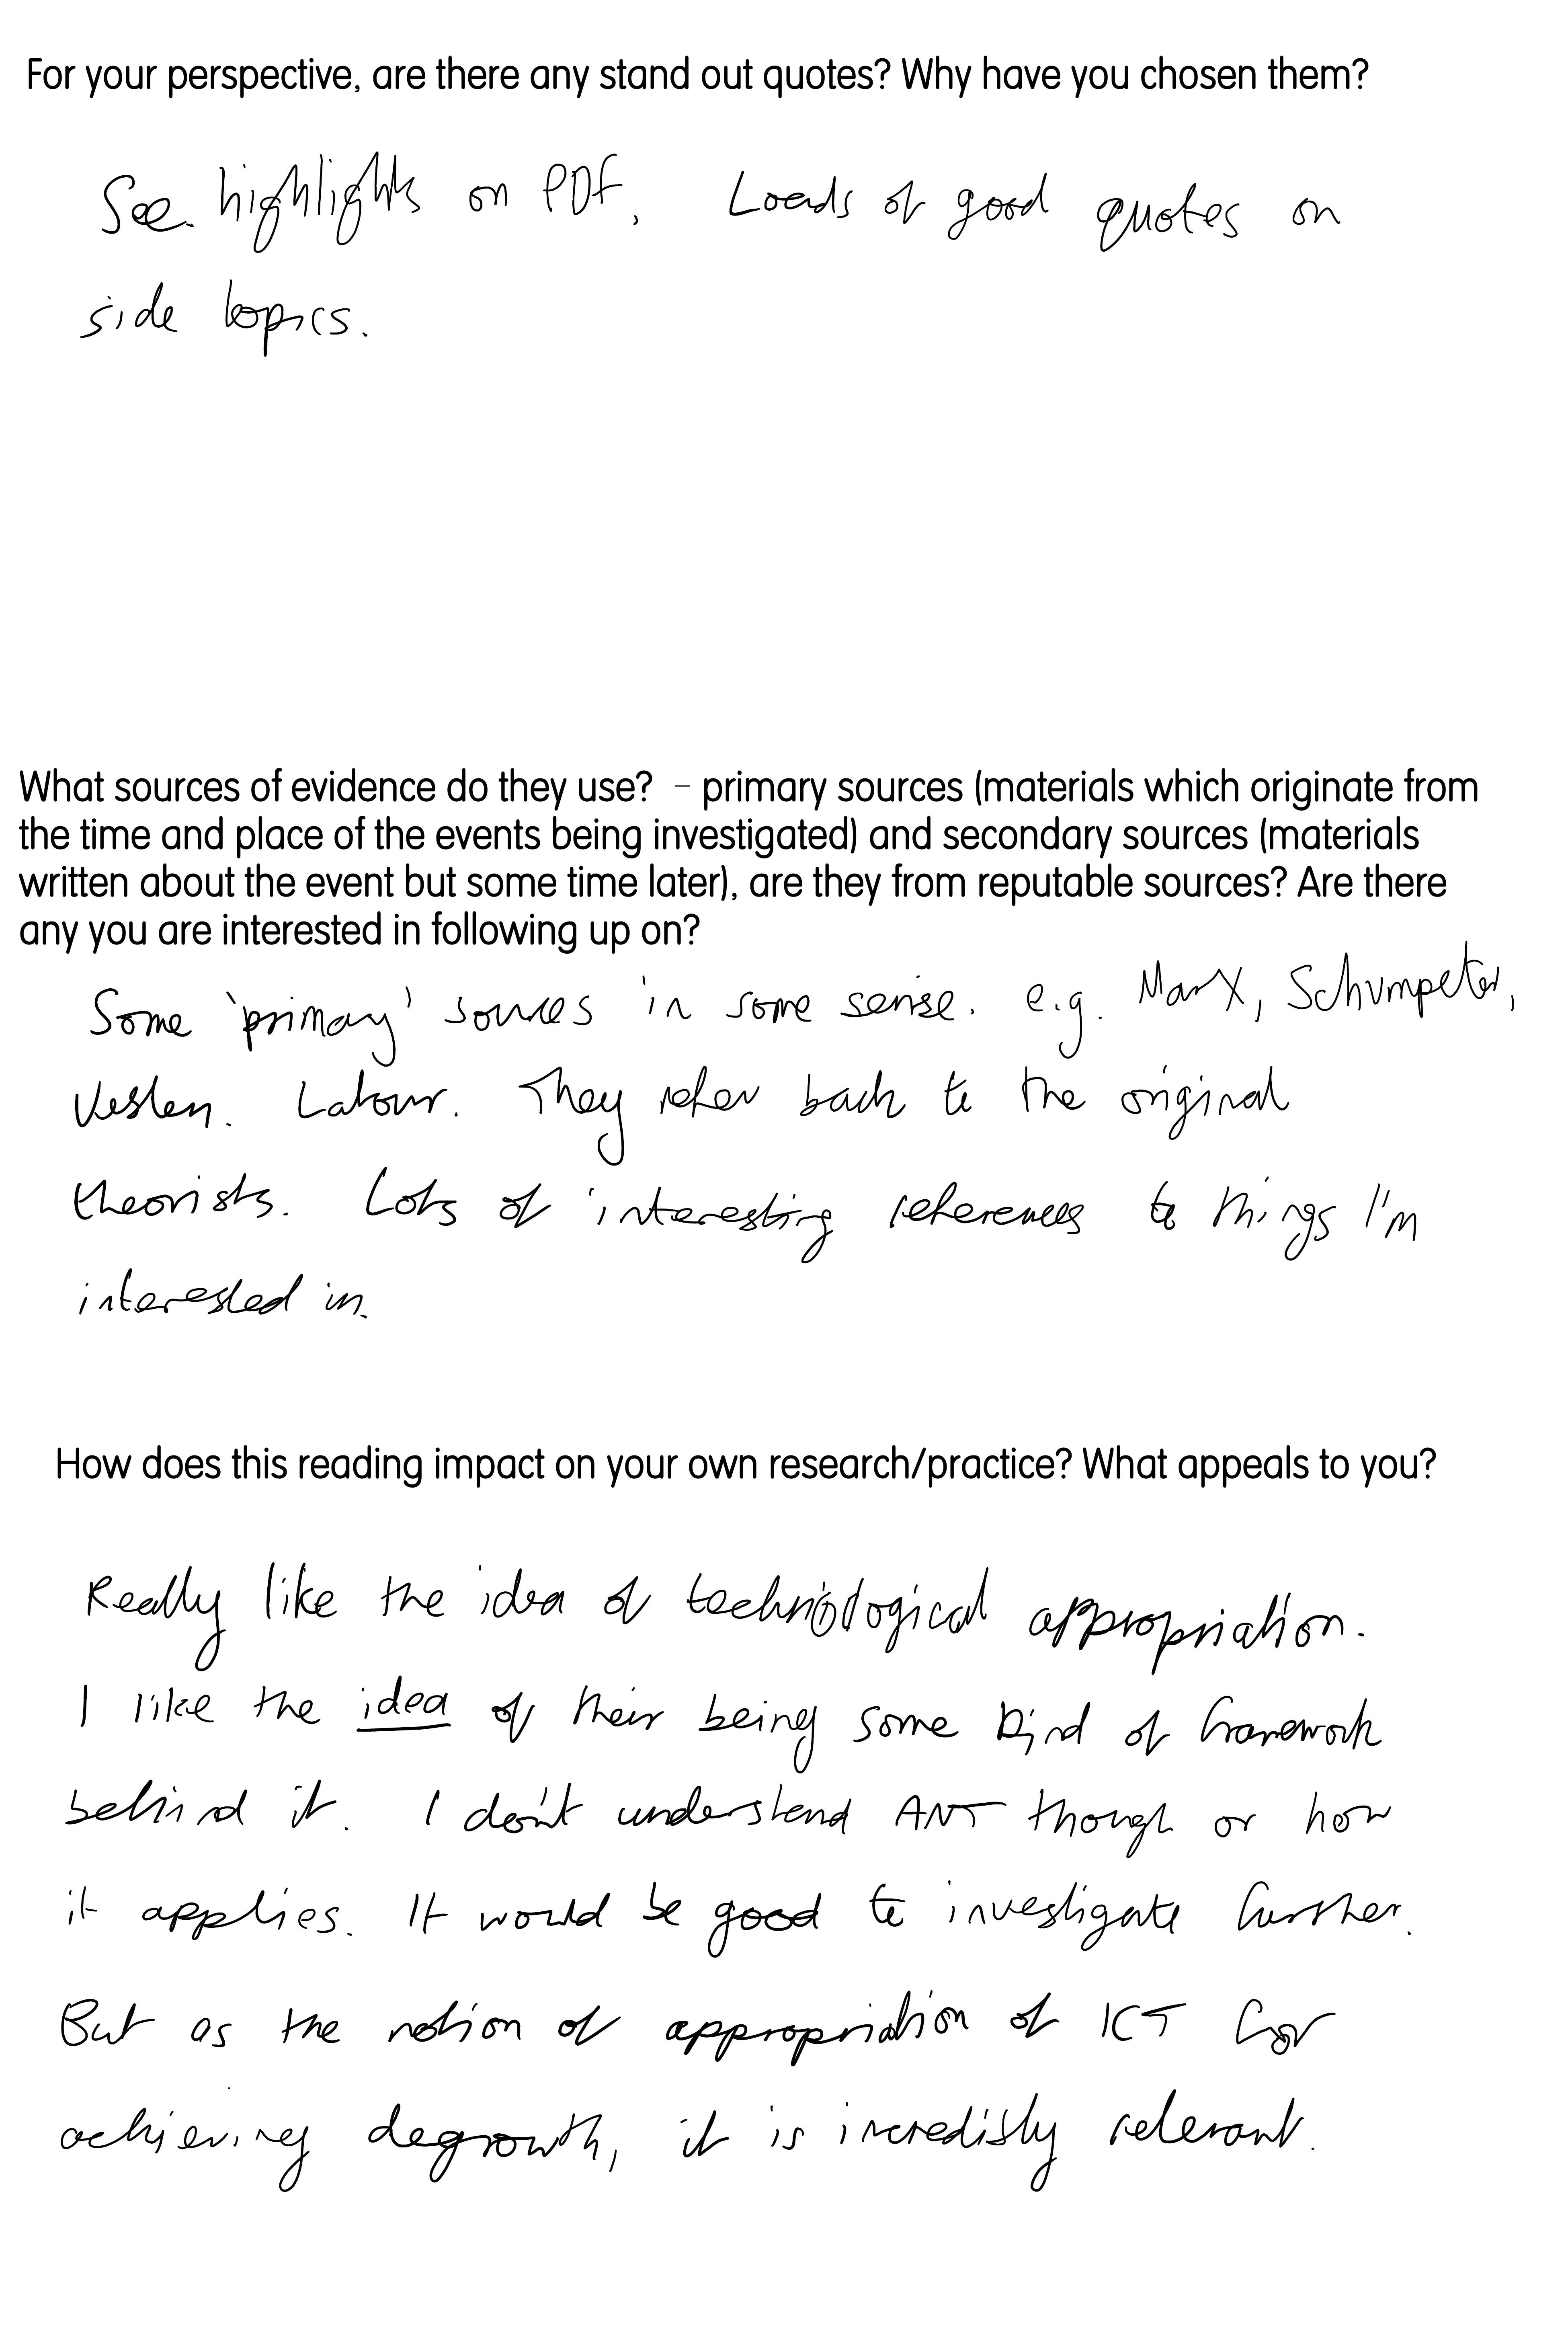 For your perspective, are there any stand out quotes? Why have you chosen them?
See highlights on PDF. Loads of good quotes on
side topics.
What sources of evidence do they use?  – primary sources (materials which originate from
the time and place of the events being investigated) and secondary sources (materials
written about the event but some time later), are they from reputable sources? Are there
any you are interested in following up on?
Some 'primary' sources in some sense. e.g. Marx, Schumpeter,
Veblen. Latour. They refer back to the original
theorists. Lots of interesting references to things I'm
interested in.
How does this reading impact on your own research/practice? What appeals to you?
Really like the idea of technological appropriation.
I like the idea of their being some kind of framework
behind it. I don't understand ANT though or how
it applies. It would be good to investigate further.
But as the notion of appropriation of ICT for
achieving degrowth, it is incredibly relevant.